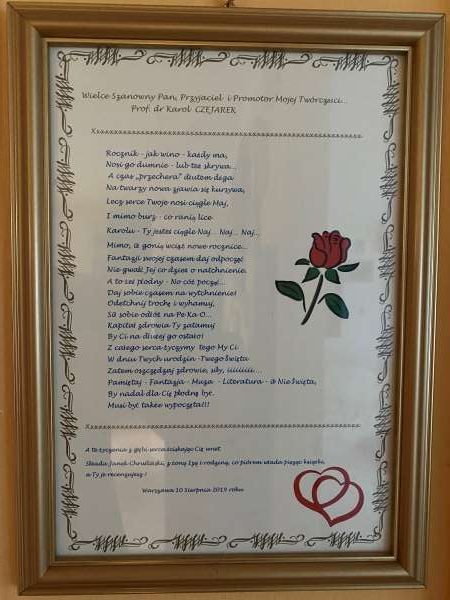 Wielce Szanowny Pan, Przyjaciel i Promotor Mojej Twórczści...
Prof. dr Karol CZEJAREK
Rocznik - jak wino - każdy ma,
Nosi go dumnie - lub też skrywa...
A czas „przechera" dłutem dęga
Na twarzy nowa zjawia się kurzywa,
Lecz serce Twoje nosi ciągle Maj,
I mimo burz - co ranią lice
Karolu - Ty jesteś ciągle Naj... Naj... Naj...
Mimo, iż gonią wciąż nowe rocznice...
Fantazji swojej czasem daj odpocząć
Nie gwałć Jej co dzień o natchnienie.
A to żeś płodny - No cóż począć...
Daj sobie czasem na wytchnienie!
Odetchnij trochę i wyhamuj,
Są sobie odłóż na Pe Ka O...
Kapitał zdrowia Ty załamuj
By Ci na dłużej go ostało!
Z całego serca życzymy tego My Ci
W dniu Twych urodzin -Twego Święta
Zatem oszczędzaj zdrowie, siły,
Pamiętaj - Fantazja - Muza - Literatura - to Nie Święta,
By nadal dla Cię płodną być
Musi być także wypoczęta!!!
A te życzenia z głębi serca ściskając Cię wraz
Składa Janek Chruśliński, z żoną Izą i rodziną, co piórem włada pisząc książki,
a Ty je recenzujesz!
Warszawa 10 Sierpnia 2019 roku